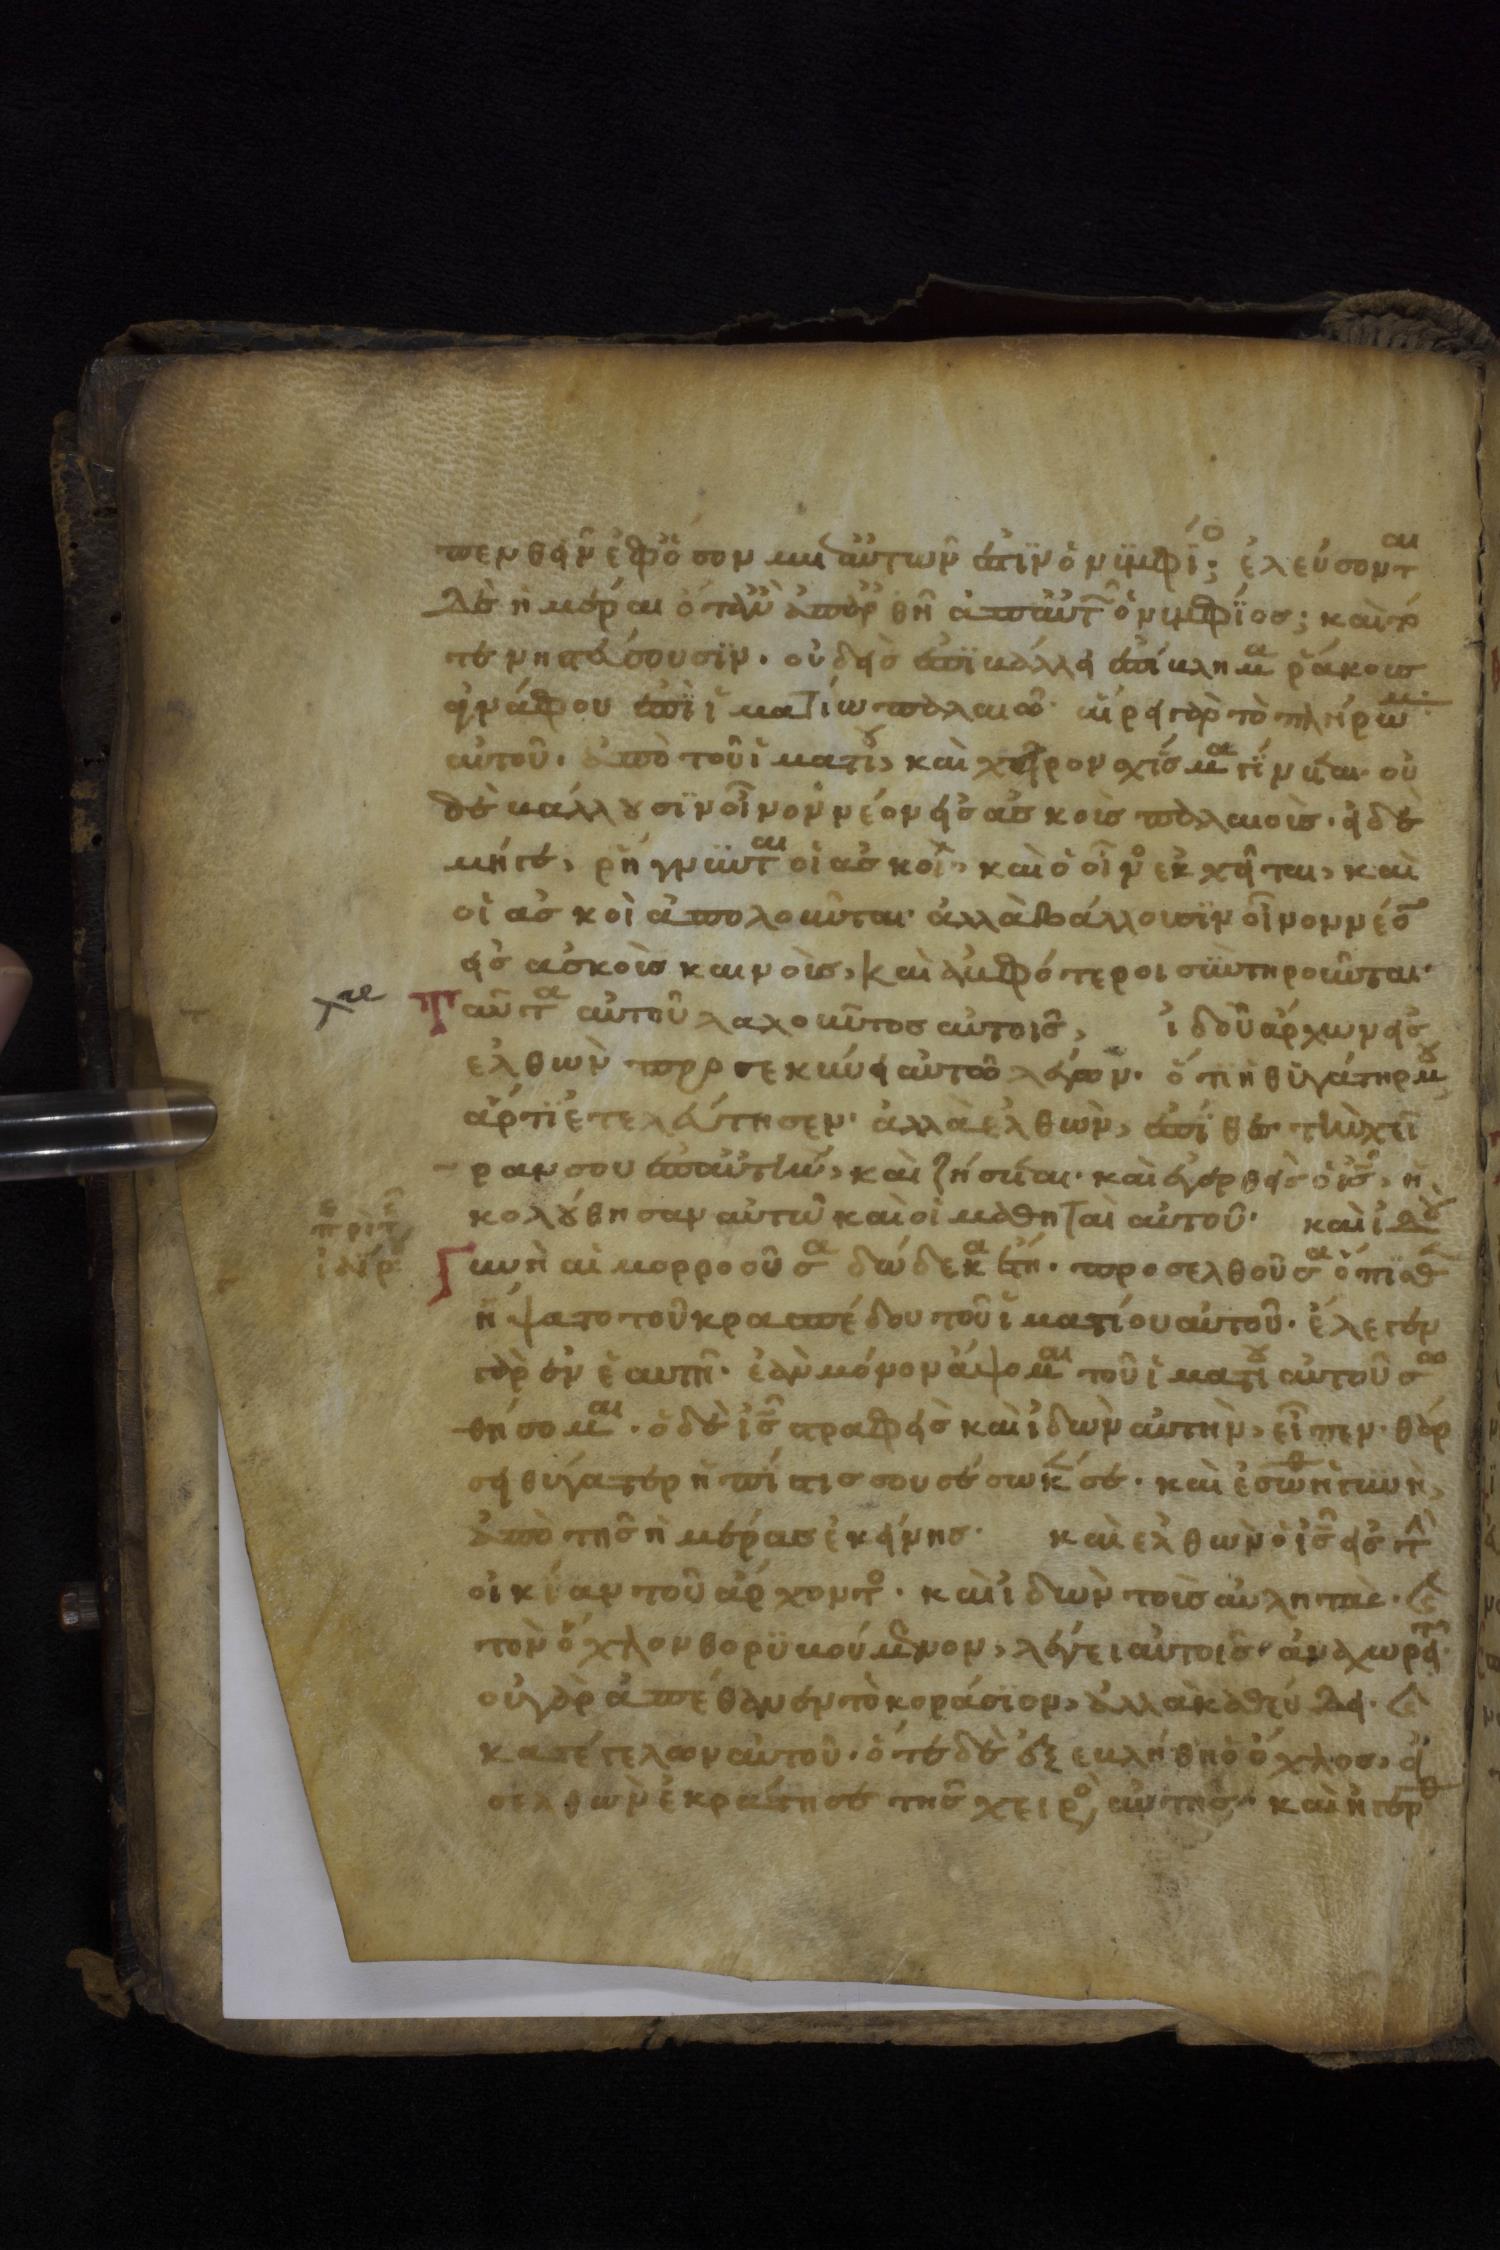 πενθεῖν ἐφ' ὅσον μετ' αὐτῶν ἐστὶν ὁ νυμφίος; ἐλεύσονται
δὲ ἡμέραι ὅταν ἀπαρθῇ ἀπ' αὐτῶν ὁ νυμφίος; καὶ τό
τε νηστεύσουσιν. οὐδεὶς ἐπιβάλλει ἐπίβλημα ῥάκους
ἀγνάφου ἐπὶ ἱματίω παλαιῶ. αἴρει γὰρ τὸ πλήρωμα
αὐτοῦ. ἀπὸ τοῦ ἱματίου, καὶ χεῖρον σχίσμα γίνεται. οὐ
δὲ βάλλουσιν οἶνον νέον εἰς ἀσκοὺς παλαιοὺς. εἰ δὲ
μήγε, ῥήγνυνται οἱ ἀσκοὶ, καὶ ὁ οἶνος ἐκχεῖται, καὶ
οἱ ἀσκοὶ ἀπολοῦνται. ἀλλὰ βάλλουσιν οἶνον νέον
εἰς ἀσκοὺς καινοὺς, καὶ ἀμφότεροι συντηροῦνται.
Ταῦτα αὐτοῦ λαλοῦντος αὐτοῖς, ἰδοῦ ἄρχων εἰς
ελθὼν προσεκύνει αὐτῶ λέγων. ὅτι ἡ θυγάτηρ μου
ἄρτι ἐτελεύτησεν. ἀλλὰ ἐλθὼν, ἐπίθες τὴν χεῖ
ραν σου ἐπ' αὐτὴν, καὶ ζήσεται. καὶ ἐγερθεὶς ὁ ις, ἠ
κολούθησαν αὐτῶ καὶ οἱ μαθηταὶ αὐτοῦ. καὶ ἰδοὺ
Γυνὴ αἱμορροοῦσα δώδεκα ἔτη. προσελθοῦσα ὄπισθεν
ἥψατο τοῦ κρασπέδου τοῦ ἱματίου αὐτοῦ. ἔλεγεν
γὰρ ἐν ἑαυτῇ. ἐὰν μόνον ἅψομαι τοῦ ἱματίου αὐτοῦ σω
θήσομαι. ὁ δὲ ις στραφεὶς καὶ ἰδὼν αὐτὴν, εἶπεν. θάρ
σει θύγατερ ἡ πίστις σου σέσωκέ σε. καὶ ἐσώθη ἡ γυνὴ,
ἀπὸ τῆς ἡμέρας ἐκείνης. καὶ ἐλθὼν ὁ ις εἰς τὴν
οἰκίαν τοῦ ἄρχοντος. καὶ ἰδὼν τοὺς αὐλητὰς. καὶ
τὸν ὄχλον θορυβούμενον, λέγει αὐτοῖς. ἀναχωρεῖτε.
οὐ γὰρ ἀπέθανεν τὸ κοράσιον, ἀλλὰ καθεύδει. καὶ
κατεγέλων αὐτοῦ. ὅτε δὲ ἐξεβλήθη ὁ ὄχλος, εἰ
σελθὼν ἐκράτησε τῆς χειρὸς αὐτῆς. καὶ ἠγέρθη